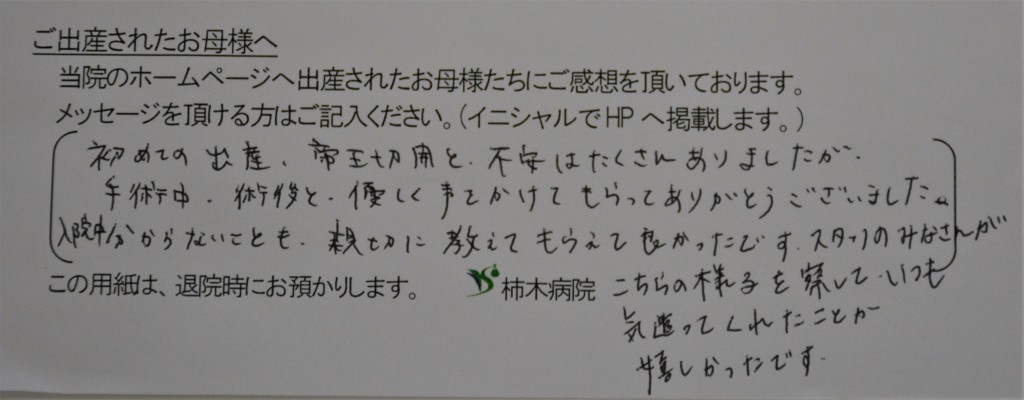 ご出産されたお母様へ
当院のホームページへ出産されたお母様たちにご感想を頂いております。
メッセージを頂ける方はご記入ください。(イニシャルでHPへ掲載します。)
初めての出産、帝王切開と、不安はたくさんありましたが、
手術中、術後と、優しく声をかけてもらってありがとうございました。
入院中分からないことも、親切に教えてもらえて良かったです。スタッフのみなさんが
こちらの様子を察して、いつも
気遣ってくれたことが
嬉しかったです。
この用紙は、退院時にお預かりします。
柿木病院